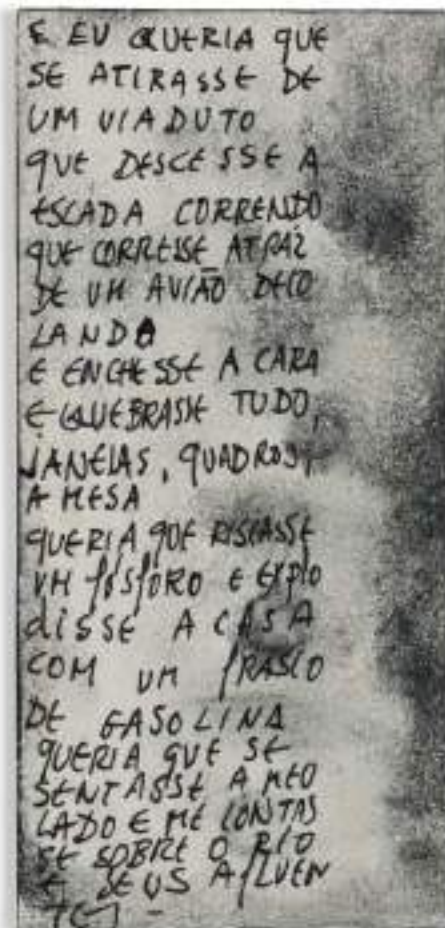 E EU QUERIA QUE
SE ATIRASSE DE
UM VIADUTO
QUE DESCESSE A
ESCADA CORRENDO
QUE CORRESSE ATRAZ
DE UM AVIÃO DECO
LANDO
E ENCHESSE A CARA
E QUEBRASSE TUDO,
JANELAS, QUADROS,
A MESA
QUERIA QUE RISCASSE
UM fósforo E EXPLO
diSSE A CASA
COM UM fRASCO
DE GASOLINA
QUERIA QUE SE
SENTASSE A MEO
LADO E ME CONTAS
SE SOBRE O RIO
E SEUS AfLUEN
TES -